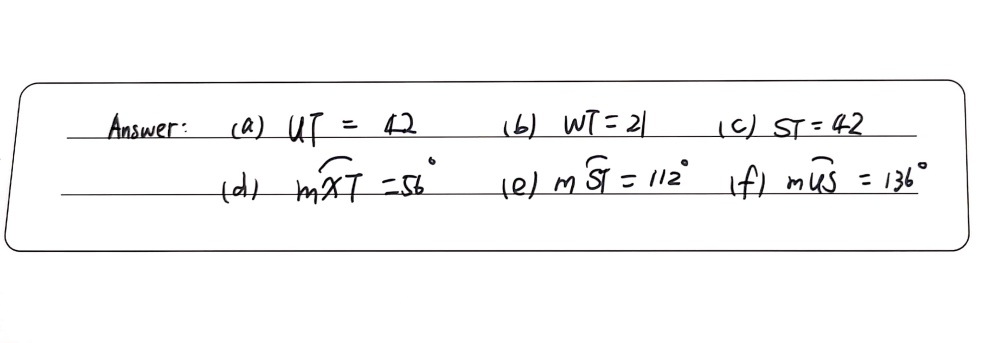 Answer: (a) UT = 42 (b) WT = 21 (c) ST = 42
(d) m⌢XT = 56° (e) m⌢ST = 112° (f) m⌢US = 136°